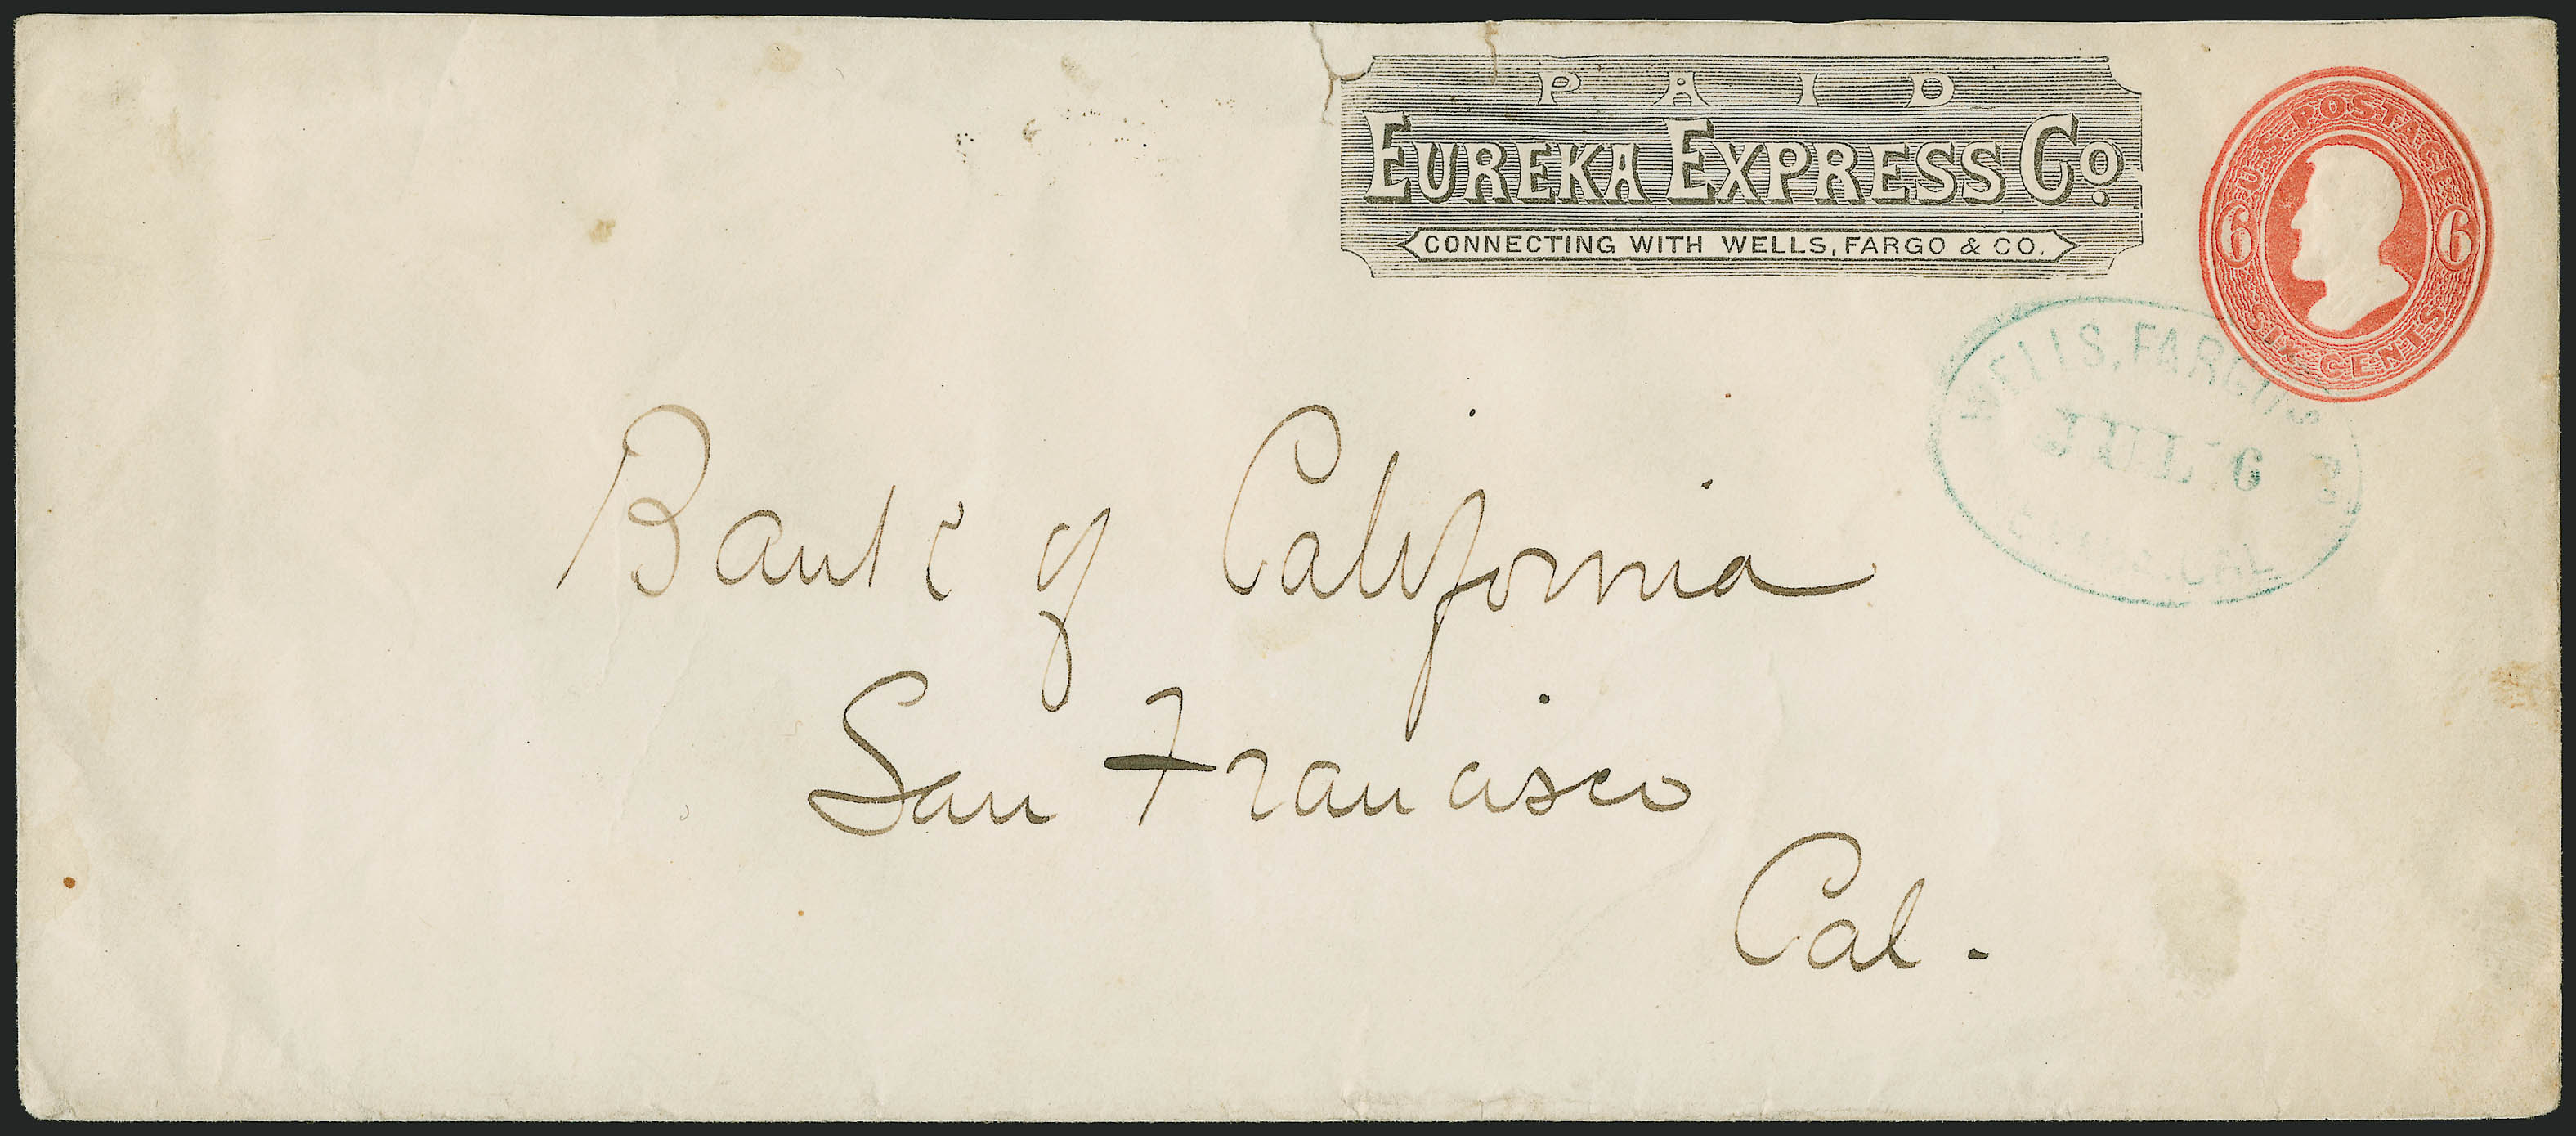 PAID
EUREKA EXPRESS Co.
CONNECTING WITH WELLS, FARGO & CO.
U.S. POSTAGE
6 6
SIX CENTS
WELLS, FARGO
JUL 6
CAL
Bank of California
San Francisco
Cal.